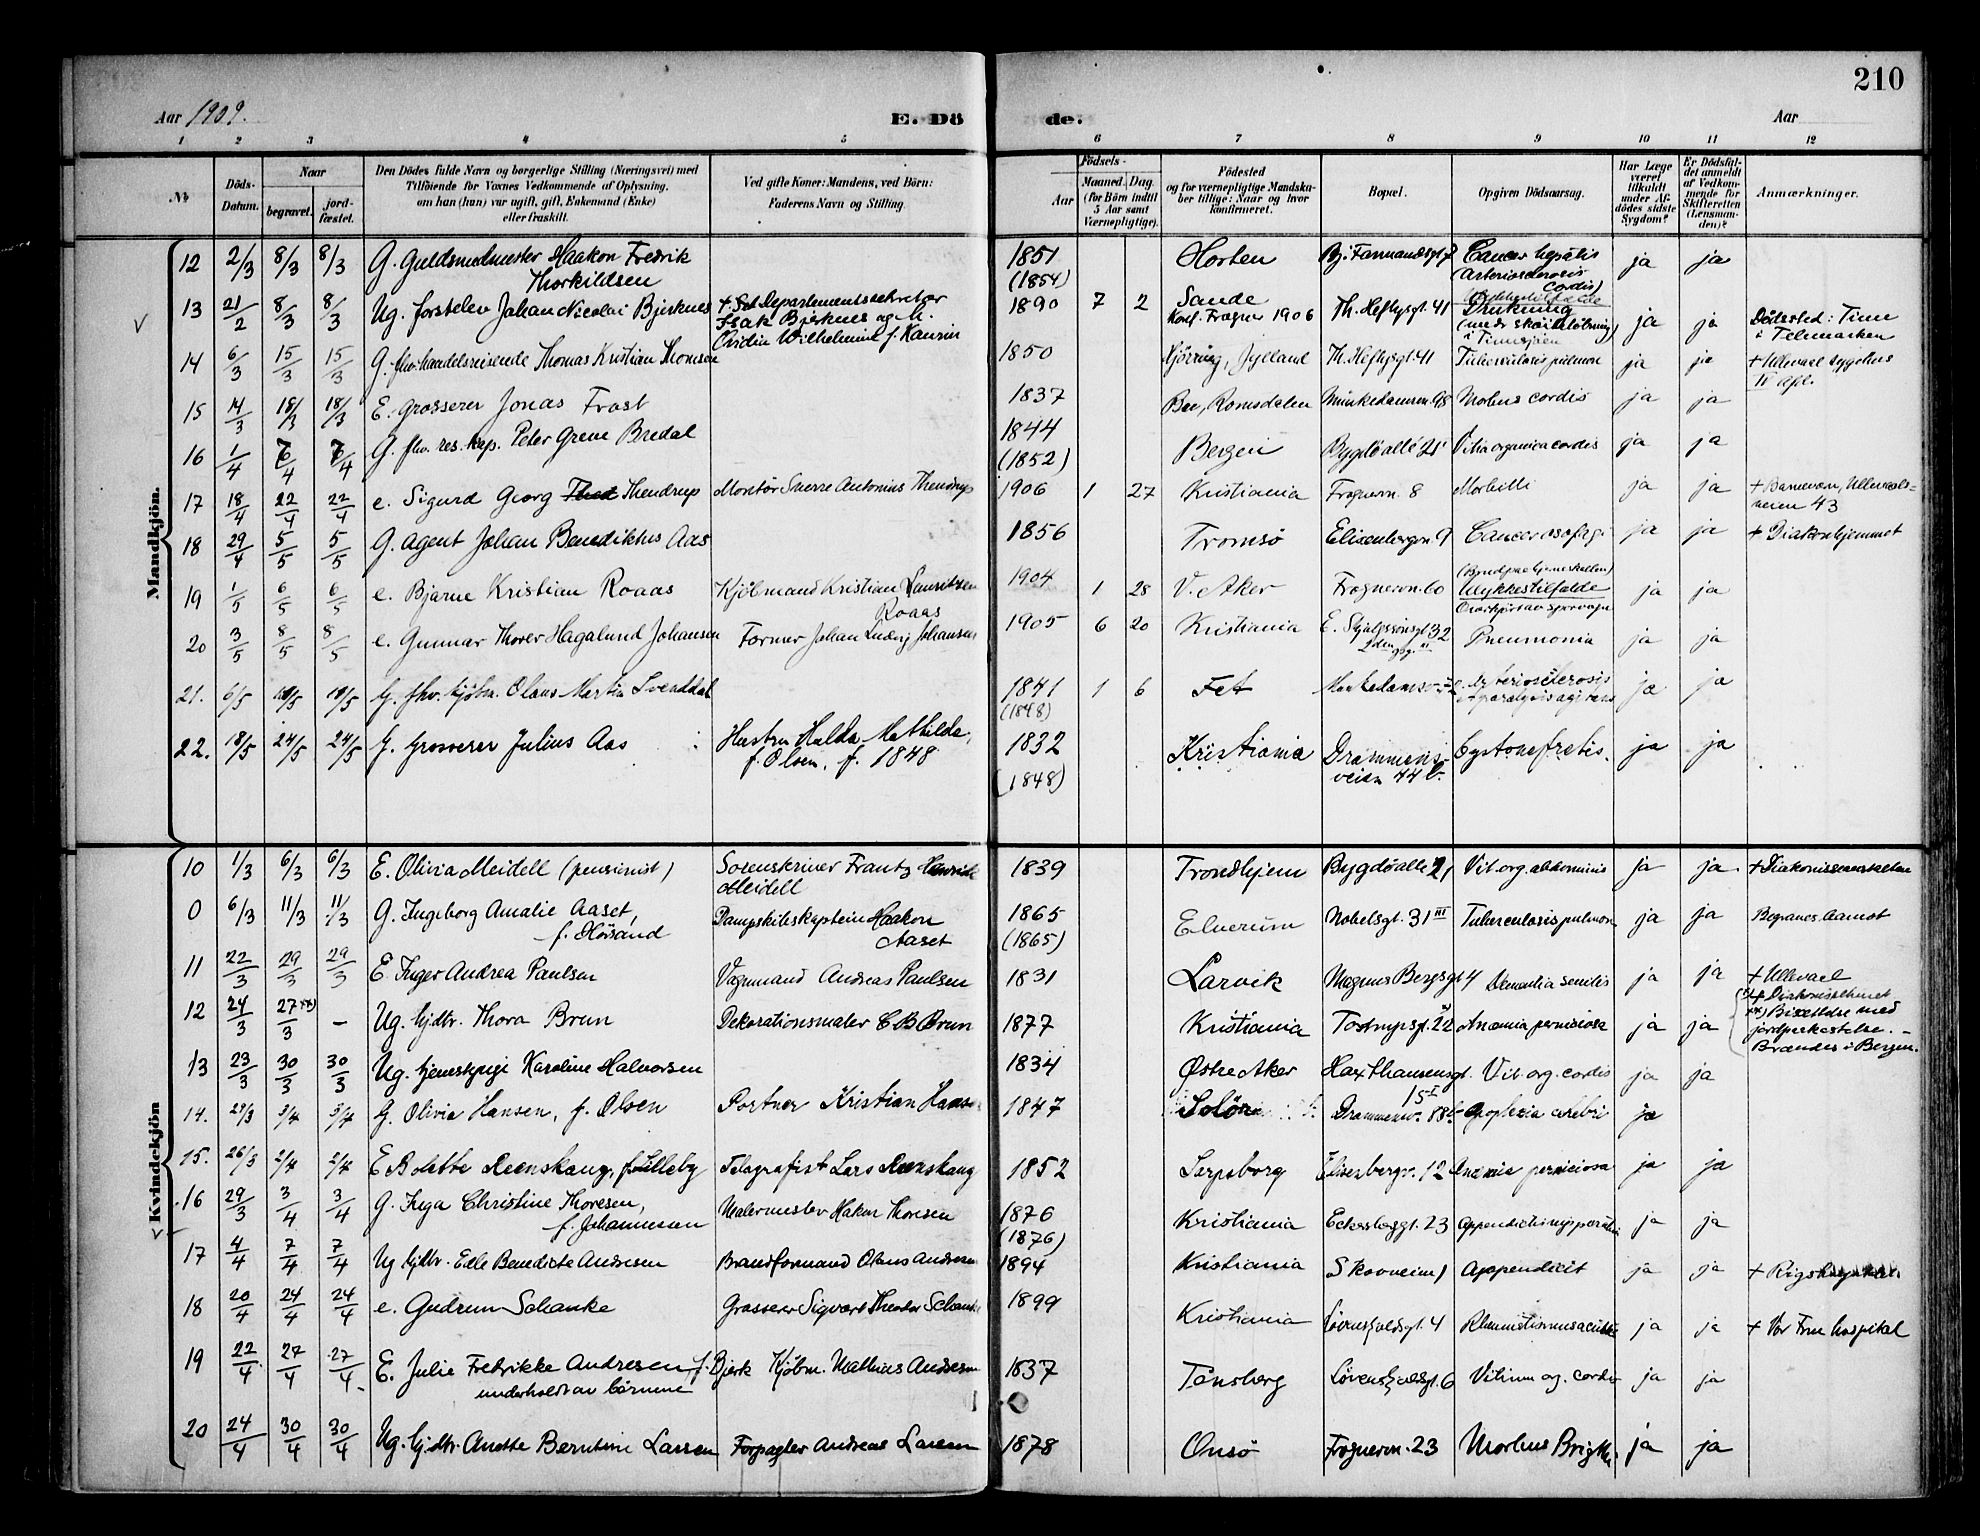 210
Aar 1909.
E. Dö de.
Aar
1 2 3 4 5 6 7 8 9 10 11 12
№
Döds-Datum.
Naar
begravet.
jord-fæstet.
Den Dödes fulde Navn og borgerlige Stilling (Næringsvei) med
Tilföiende for Voxnes Vedkommende af Oplysning.
om han (hun) var ugift, gift, Enkemand (Enke)
eller fraskilt.
Ved gifte Koner: Mandens, ved Börn:
Faderens Navn og Stilling.
Födsels-
Aar
Maaned. Dag.
(for Börn indtil
5 Aar samt
Værnepligtige).
Födested
og for værnepligtige Mandska-
ber tillige: Naar og hvor
konfirmeret.
Bopæl.
Opgiven Dödsaarsag.
Har Læge
været
tilkaldt
under Af-
dödes sidste
Sygdom?
Er Dödsfal-
det anmeldt
af Vedkom-
mende for
Skifteretten
(Lensman-
den)?
Anmærkninger.
Mandkjön.
12 2/3 8/3 8/3 G. Guldsmedmester Haakon Fredrik Thorkildsen 1851 (1854) Horten Bj. Farmandsgt 7 Cancer hepatis (Arteriosclerosis cordis) ja ja
13 21/2 8/3 8/3 Ug. forstelev Johan Nicolai Bjerknes + Departementssekretær Isak Bjerknes og h. Ovidia Wilhelmine f. Kaurin 1890 7 2 Sande Konf. Frogner 1906 Th. Heftysgt. 41 Drukning (under skøiteløbning) i Tinnsjøen ja ja Dödssted: Tinn i Telemarken
14 6/3 15/3 15/3 G. fhv. handelsreisende Thomas Kristian Thomsen 1850 Hjörring, Jylland Th. Heftysgt. 41 Tuberculosis pulmon ja ja + Ullevael sygehus IV afd.
15 14/3 18/3 18/3 E. Grosserer Jonas Frost 1837 Bee, Romsdalen Munkedamsvn. 98 Morbus cordis ja ja
16 1/4 6/4 6/4 G. fhv. res. kap. Peter Greve Bredal 1844 (1852) Bergen Bygdöallé 21 Vitia organica cordis ja ja
17 18/4 22/4 22/4 e. Sigurd Georg Thendrup Montör Sverre Antonius Thendrup 1906 1 27 Kristiania Frognervn. 8 Morbilli ja ja + Barnevæn, Ullevaals-veien 43
18 29/4 5/5 5/5 G. agent Johan Benediktus Aas 1856 Tromsö Elisenbergvn. 9 Cancer esofagi ja ja + Diakonhjemmet
19 1/5 6/5 6/5 e. Bjarne Kristian Roaas Kjöbmand Kristian Lauritzen Roaas 1904 1 28 V. Aker Frognervn. 60 Ulykkestilfælde Overkjørt av sporvogn ja ja
20 3/5 8/5 8/5 e. Gunnar Thorer Hagalund Johansen Former Johan Ludvig Johansen 1905 6 20 Kristiania E. Skjalgssönsgt 32 Pneumonia ja ja
21. 6/5 10/5 10/5 G. fhv. kjöbm. Olaus Martin Svenddal 1841 (1848) 1 6 Fet Arteriosclerosis paralysis agitans ja ja
22. 18/5 24/5 24/5 G. Grosserer Julius Aas Hustru Hulda Mathilde, f. Olsen, f. 1848 1832 (1848) Kristiania Drammens-veien 44 b. Cystonefretis. ja ja
Kvindekjön
10 1/3 6/3 6/3 E. Olivia Meidell (pensionist) Sorenskriver Frantz Meidell 1839 Trondhjem Bygdöallé 21 Vit. org. abdominis ja ja + Diakonisseanstalten
0 6/3 11/3 11/3 G. Ingeborg Amalie Aaset, f. Høsand Dampskibskaptein Haakon Aaset 1865 (1865) Elverum Nobelsgt. 31 III Tuberculosis pulmon ja ja Begraves Aamot
11 22/3 29/3 29/3 E. Inger Andrea Paulsen Vognmand Andreas Paulsen 1831 Larvik Magnus Bergsgt 4 Dementia senilis ja ja + Ullevael
12 24/3 27/3 – Ug. hjdtr. Thora Brun Dekorationsmaler C B Brun 1877 Kristiania Tostrupsgt. 22 Anæmia perniciosa ja ja Bisættelse med jordpaakastelse. – Brændes i Bergen.
13 23/3 30/3 30/3 Ug. tjenestepige Karoline Halvorsen 1834 Østre Aker Haxthausensgt. 15 I Vit. org. cordis ja ja
14. 29/3 3/4 3/4 G. Olivia Hansen, f. Olsen Portner Kristian Hansen 1847 Solör Drammensv. 88 b Apoplexia cerebri ja
15. 26/3 2/4 2/4 E Bolette Reenskaug, f. Lilleby Telegrafist Lars Reenskaug 1852 Sarpsborg Elisenbergv. 12 Anæmia perniciosa ja ja
16 29/3 3/4 3/4 G. Inga Christine Thoresen, f. Johannesen Malermester Hakon Thoresen 1876 (1876) Kristiania Eckersbergsgt. 23 ja ja
17 4/4 7/4 7/4 Ug hjdtr. Edle Benedicte Andresen Brandformand Olaus Andresen 1894 Kristiania Skovveien 1 Appendicit ja ja + Rigshospitalet
18 20/4 24/4 24/4 e. Gudrun Schanke Grosserer Sigvart Theodor Schanke 1899 Kristiania Løvenskjoldsgt. 4 Rheumatismus acutus ja ja + Vor Frue hospital
19 22/4 27/4 27/4 E. Julie Fredrikke Andresen f. Bjerk underholdt av börnene Kjöbm. Mathias Andresen 1837 Tönsberg Løvenskjoldsgt. 6 Vitium org. cordis ja ja
20 24/4 30/4 30/4 Ug. hjdtr. Anette Berntine Larsen Forpagter Andreas Larsen 1878 Onsö Frognervn. 23 Morbus Brigthi ja ja